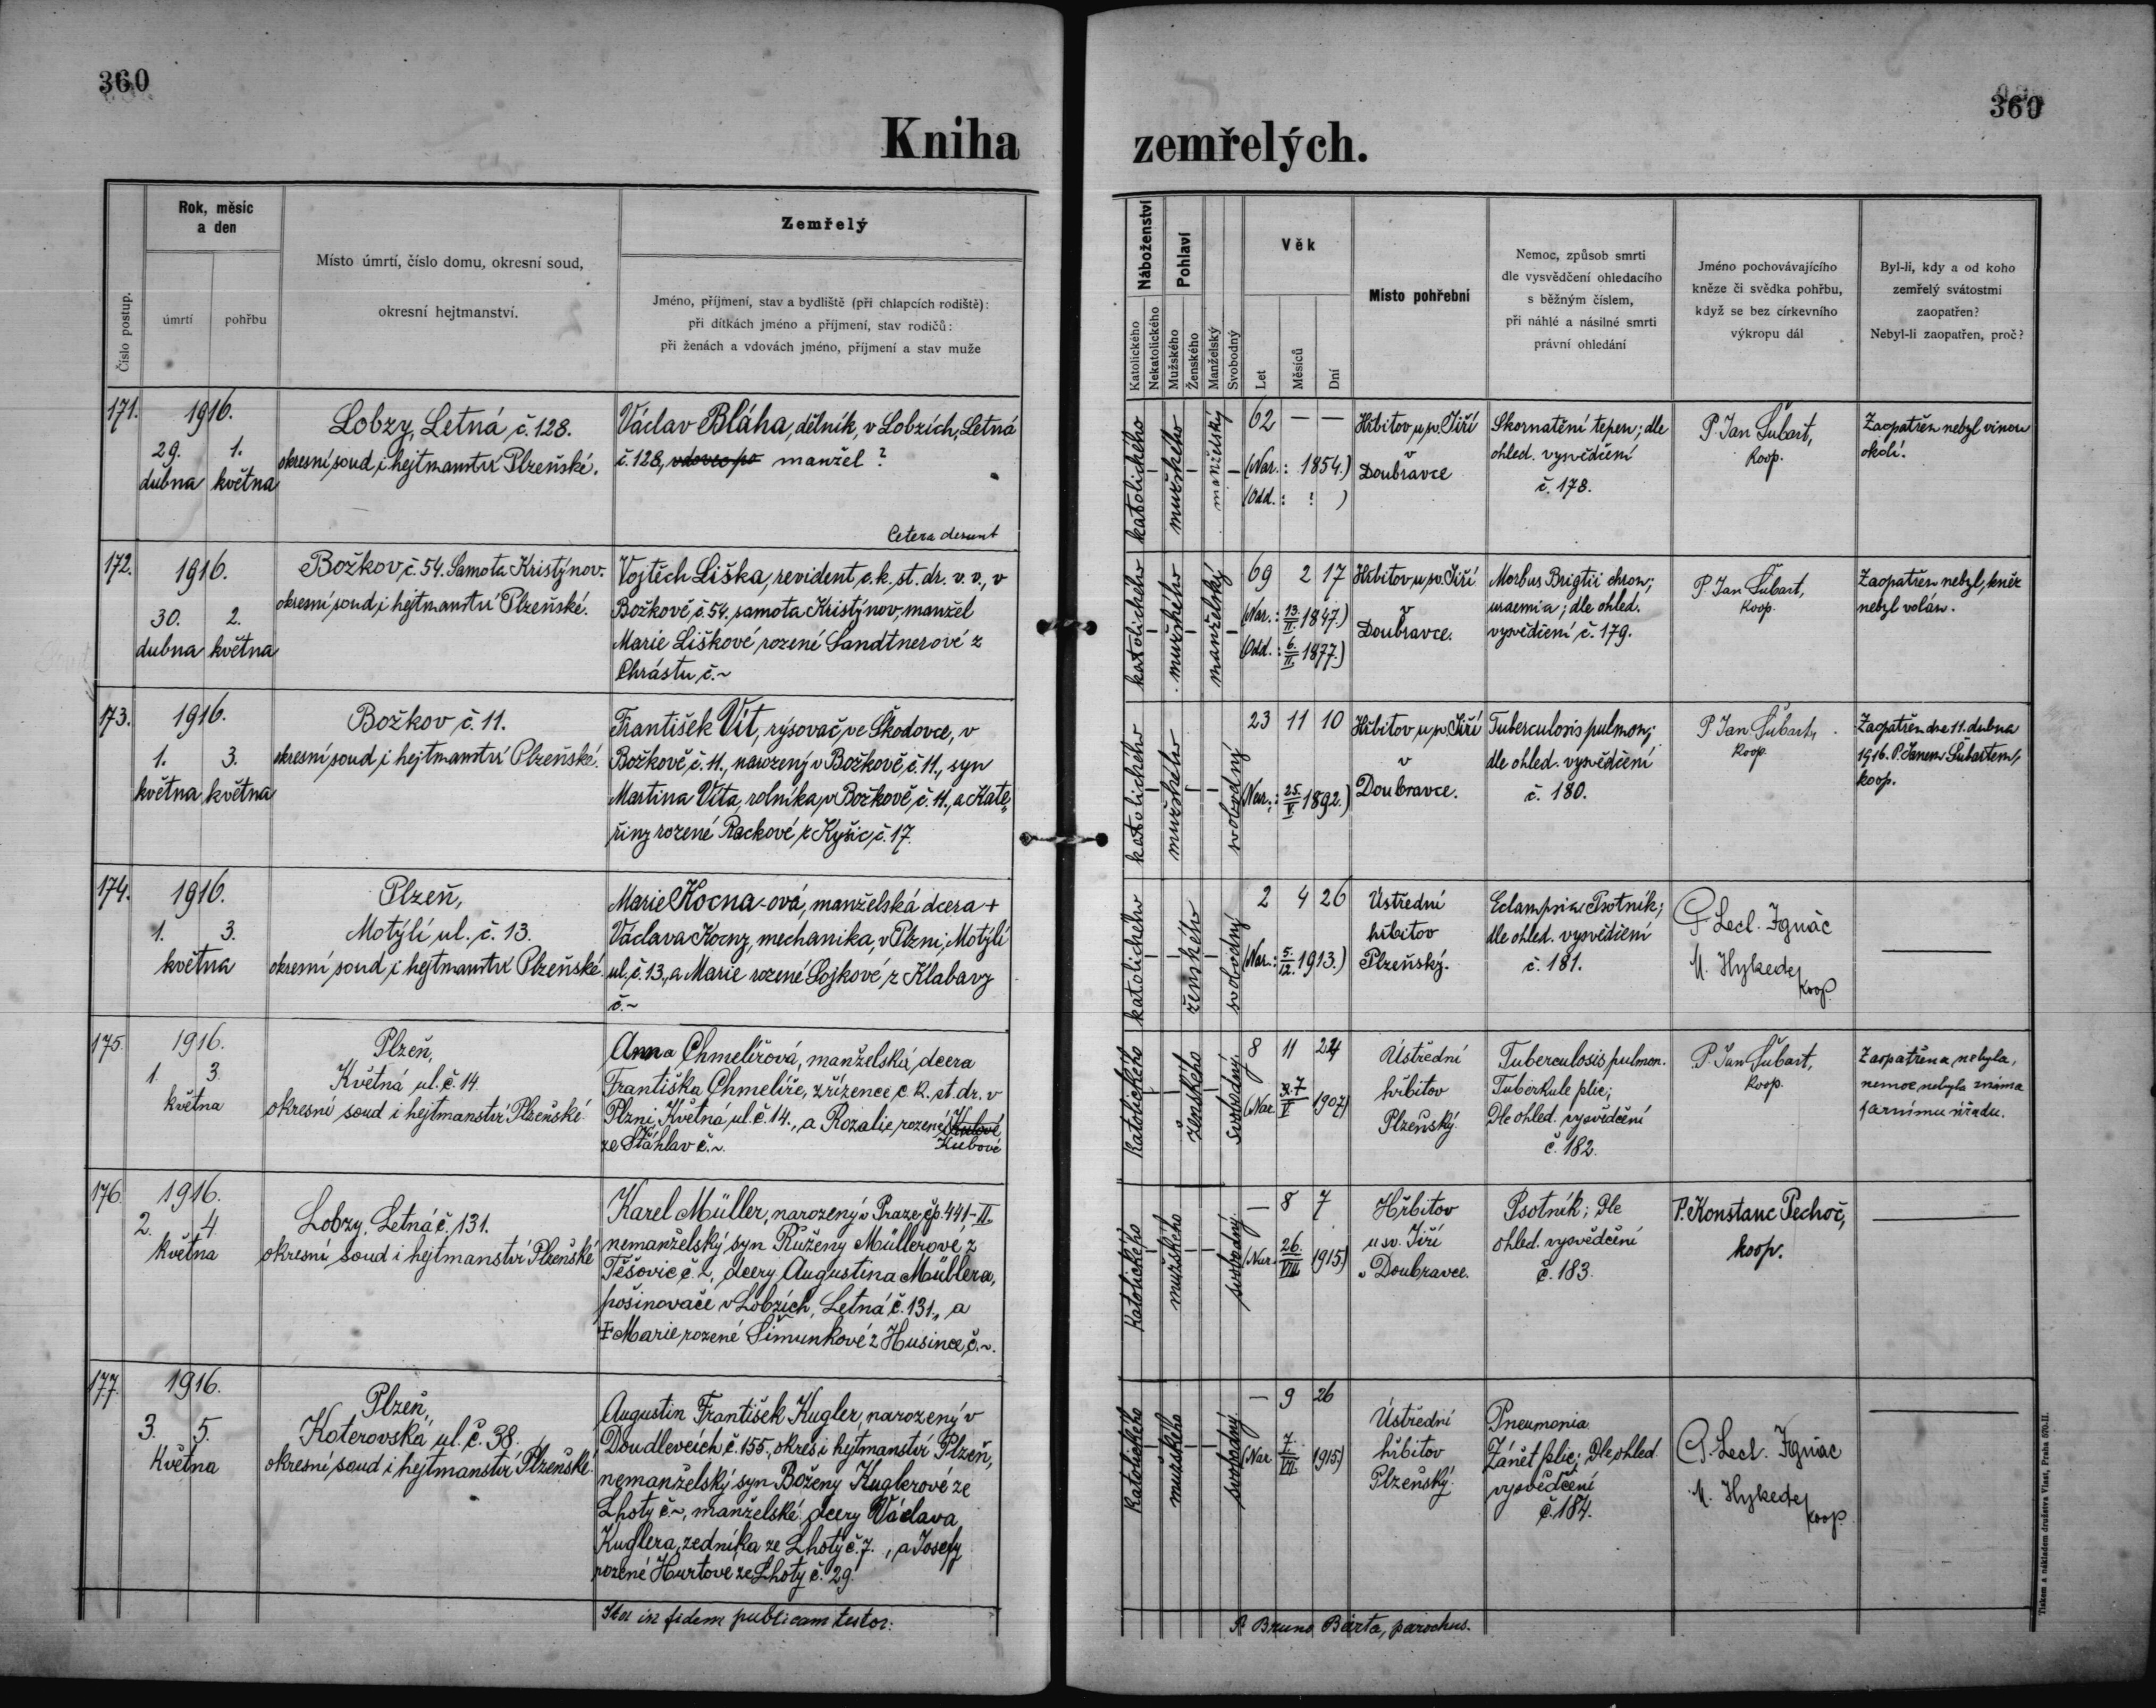 360
360
Kniha zemřelých.
Číslo postup.
Rok, měsíc
a den
úmrtí
pohřbu
Místo úmrtí, číslo domu, okresní soud,
okresní hejtmanství.
Zemřelý
Jméno, příjmení, stav a bydliště (při chlapcích rodiště):
při dítkách jméno a příjmení, stav rodičů:
při ženách a vdovách jméno, příjmení a stav muže
Náboženství
Katolického
Nekatolického
Pohlaví
Mužského
Ženského
Manželský
Svobodný
Věk
Let
Měsíců
Dní
Místo pohřební
Nemoc, způsob smrti
dle vysvědčení ohledacího
s běžným číslem,
při náhlé a násilné smrti
právní ohledání
Jméno pochovávajícího
kněze či svědka pohřbu,
když se bez církevního
výkropu dál
Byl-li, kdy a od koho
zemřelý svátostmi
zaopatřen?
Nebyl-li zaopatřen, proč?
171.
1916.
29. 1.
dubna května
Lobzy, Letná č. 128.
okresní soud i hejtmanství Plzeňské.
Václav Bláha, dělník, v Lobzích, Letná
č. 128, vdovec po manžel ?
Cetera desunt
katolického
mužského
manželský
62 — —
(Nar.: 1854.)
(Odd.: ! )
Hřbitov u sv. Jiří
v
Doubravce
Skornatění tepen; dle
ohled. vysvědčení
č. 178.
P. Jan Šubart,
koop.
Zaopatřen nebyl vinou
okolí.
172.
1916.
30. 2.
dubna května
Božkov č. 54. Samota Kristýnov.
okresní soud i hejtmanství Plzeňské.
Vojtěch Liška, revident c. k. st. dr. v. v., v
Božkově č. 54, samota Kristýnov, manžel
Marie Liškové rozené Sandtnerové z
Chrástu č. ~
katolického
mužského
manželský
69 2 17
(Nar.: 13./II. 1847.)
(Odd.: 6./II. 1877.)
Hřbitov u sv. Jiří
v
Doubravce.
Morbus Brigtii chron;
uraemia; dle ohled.
vysvědčení č. 179.
P. Jan Šubart,
koop.
Zaopatřen nebyl, kněz
nebyl volán.
173.
1916.
1. 3.
května května
Božkov č. 11.
okresní soud i hejtmanství Plzeňské.
František Vít, rýsovač ve Škodovce, v
Božkově č. 11., narozený v Božkově č. 11., syn
Martina Víta, rolníka v Božkově č. 11., a Kate„
řiny rozené Rackové z Kyšic č. 17.
katolického
mužského
svobodný
23 11 10
(Nar.: 25./V. 1892.)
Hřbitov u sv. Jiří
v
Doubravce.
Tuberculosis pulmon;
dle ohled. vysvědčení
č. 180.
P. Jan Šubart,
koop.
Zaopatřen dne 11. dubna
1916. P. Janem Šubartem,
koop.
174.
1916.
1. 3.
května
Plzeň,
Motýlí ul. č. 13.
okresní soud i hejtmanství Plzeňské.
Marie Kocna-ová, manželská dcera +
Václava Kocny, mechanika, v Plzni, Motýlí
ul. č. 13., a Marie rozené Sojkové z Klabavy
č. ~
katolického
ženského
svobodný
2 4 26
(Nar.: 5./12. 1913.)
Ústřední
hřbitov
Plzeňský.
Eclampsia Psotník;
dle ohled. vysvědčení
č. 181.
P. Lecl. Ignác
M. Hykede
koop.
175.
1916.
1. 3.
května
Plzeň,
Květná ul. č. 14.
okresní soud i hejtmanství Plzeňské.
Anna Chmelířová, manželská dcera
Františka Chmelíře, zřízence c. k. st. dr. v
Plzni, Květná ul. č. 14., a Rozalie, rozené Kulové
ze Stáhlav č. ~. Kubové
katolického
ženského
svobodný
8 11 24
(Nar. 7./V 1907)
Ústřední
hřbitov
Plzeňský.
Tuberculosis pulmon.
Tuberkule plic;
Dle ohled. vysvědčení
č. 182.
P. Jan Šubart,
koop.
Zaopatřena nebyla,
nemoc nebyla známa
farnímu úřadu.
176.
1916.
2. 4.
května
Lobzy, Letná č. 131.
okresní soud i hejtmanství Plzeňské
Karel Müller, narozený v Praze čp. 441-II.
nemanželský syn Růženy Müllerové z
Těšovic č. 2, dcery Augustina Müllera,
pošinovače v Lobzích, Letná č. 131., a
Marie, rozené Šimunkové z Husince, č. ~.
katolického
mužského
svobodný
— 8 7
(Nar. 26./VIII. 1915)
Hřbitov
u sv. Jiří
v Doubravce.
Psotník; Dle
ohled. vysvědčení
č. 183.
P. Konstanc Pechoč,
koop.
177.
1916.
3. 5.
května
Plzeň,
Koterovská ul. č. 38.
okresní soud i hejtmanství Plzeňské.
Augustin František Kugler, narozený v
Doudlevcích č. 155., okres. i hejtmanství Plzeň,
nemanželský syn Boženy Kuglerové ze
Lhoty č. ~, manželské dcery Václava
Kuglera, zedníka ze Lhoty č. 7., a Josefy
rozené Hurtové ze Lhoty č. 29.
katolického
mužského
svobodný
— 9 26
(Nar. 7./VII. 1915)
Ústřední
hřbitov
Plzeňský.
Pneumonia
Zánět plic; Dle ohled.
vysvědčení
č. 184.
P. Lecl. Ignác
M. Hykede
koop.
Ita in fidem publicam testor:
P. Bruno Bárta, parochus.
Tiskem a nákladem družstva Vlast, Praha 570-II.